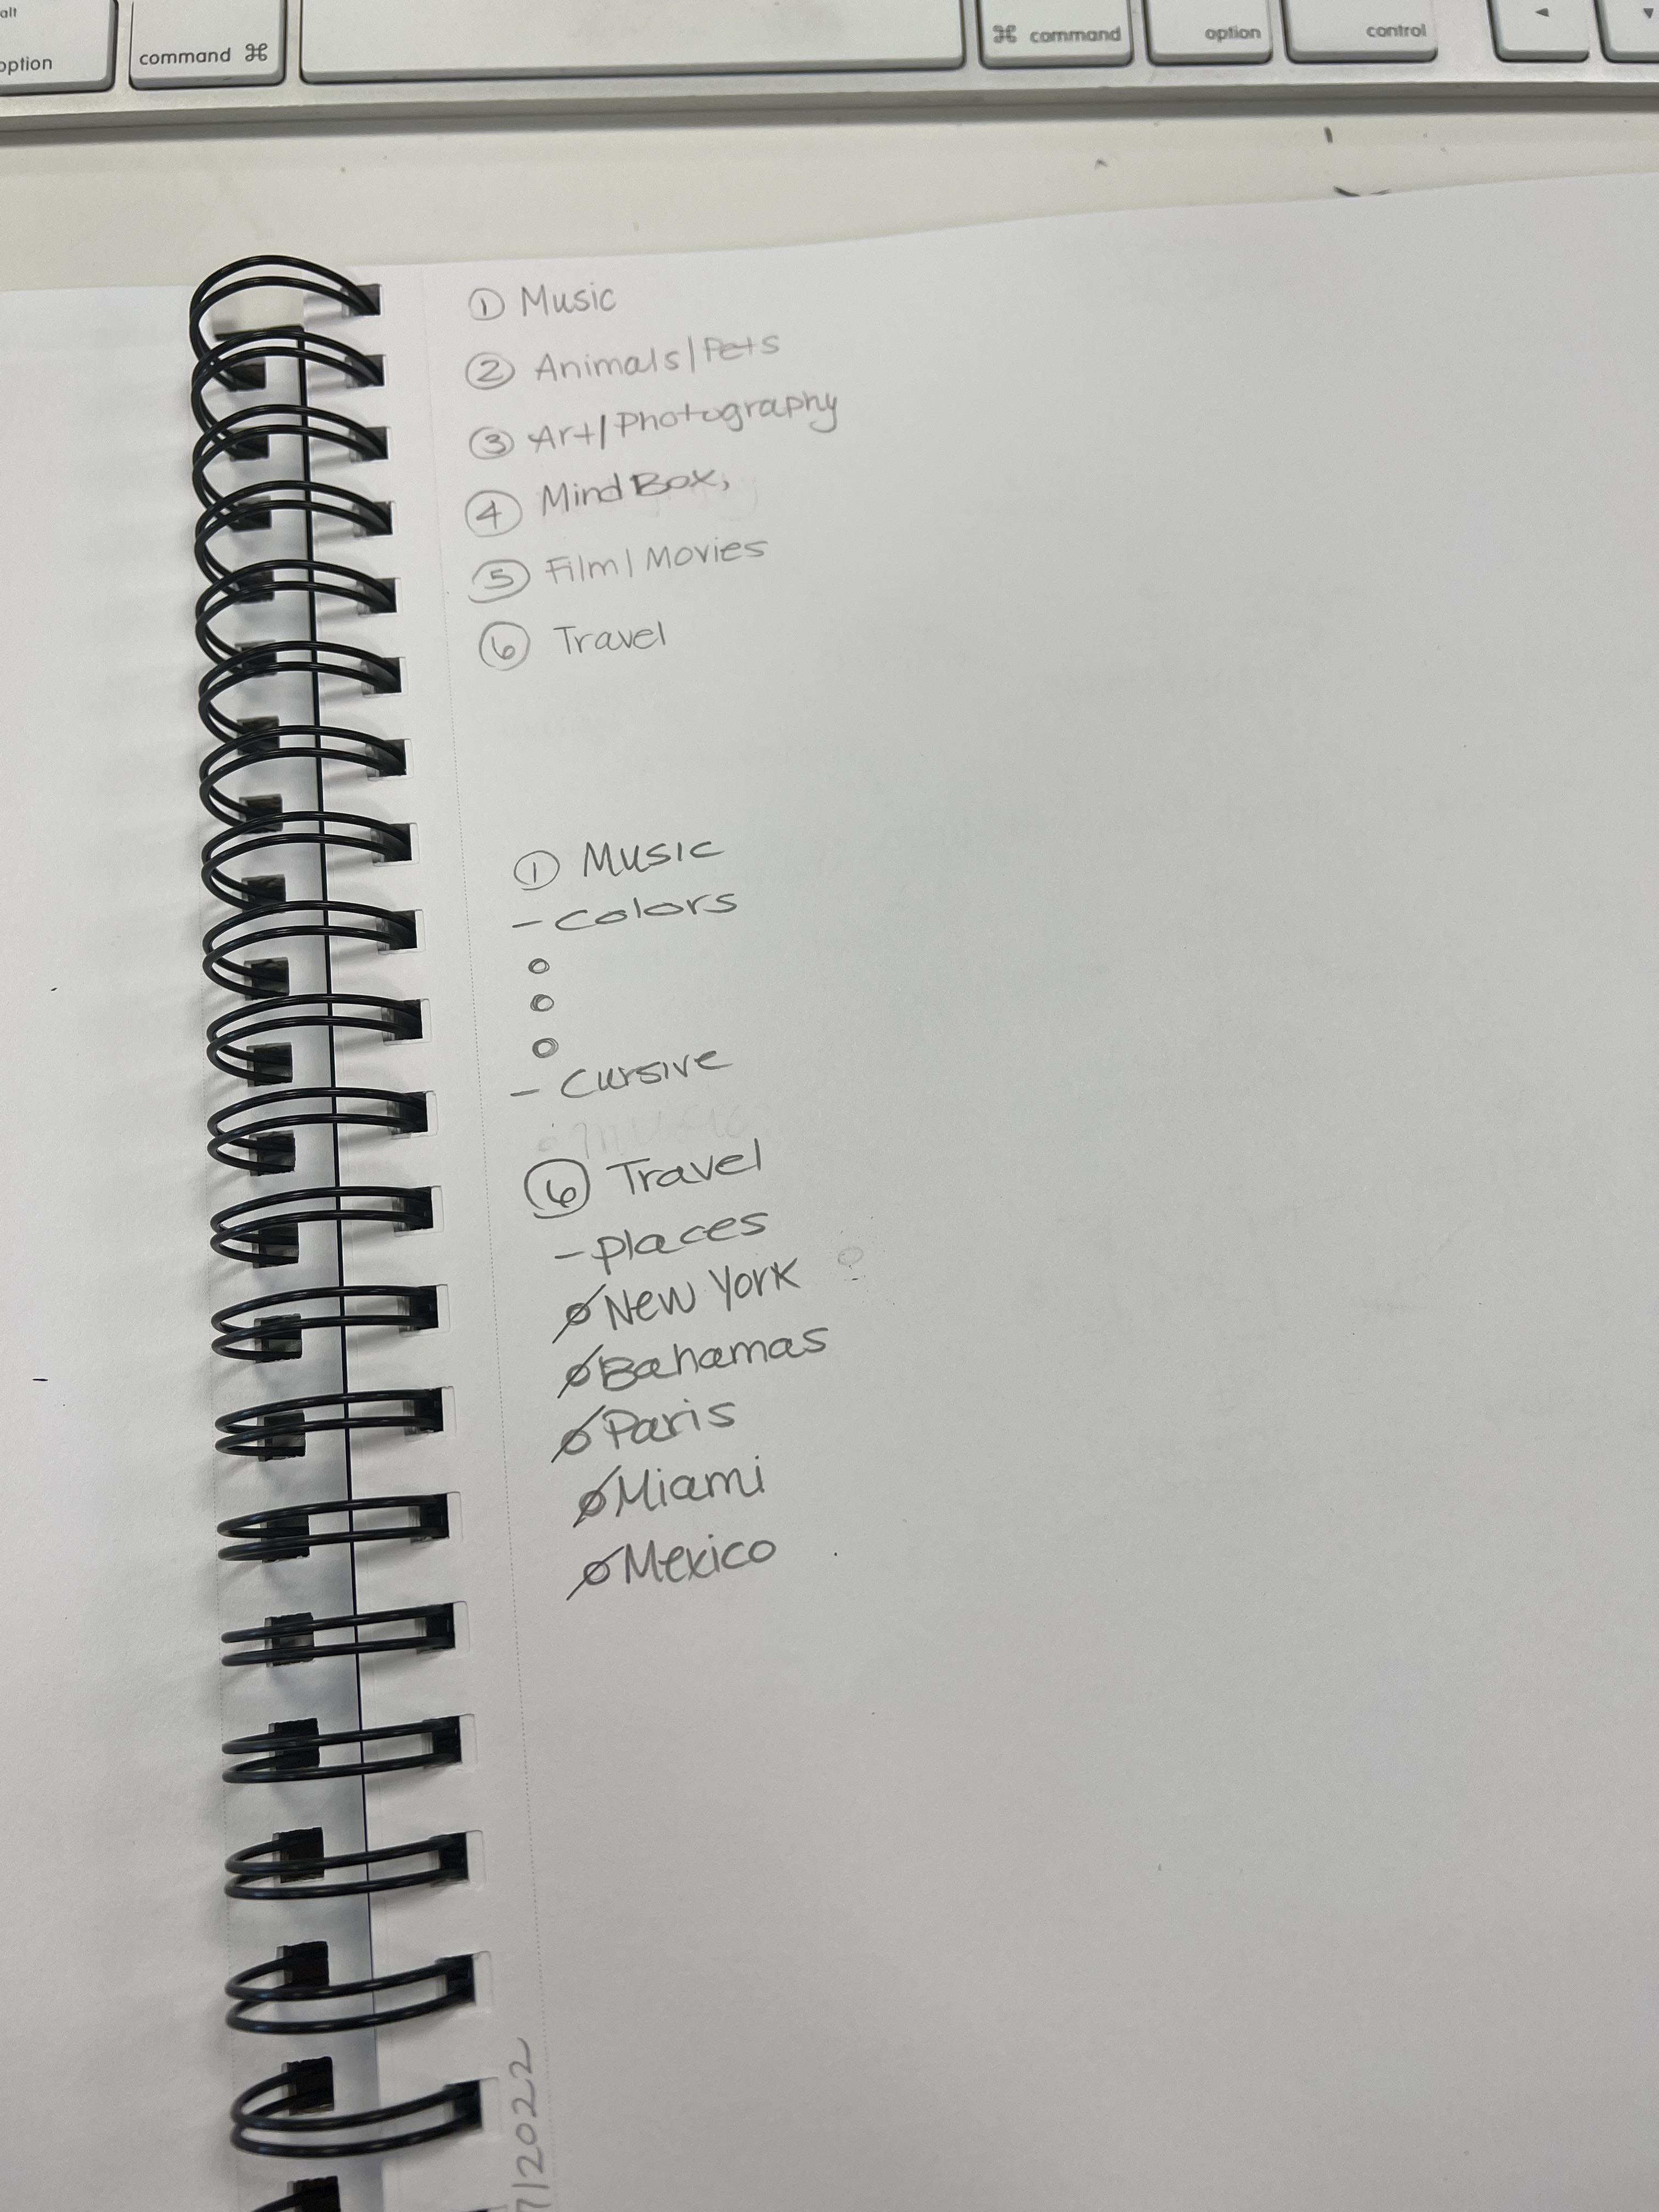 alt
option
command ⌘
⌘ command
option
control
◄
▼
① Music
② Animals/Pets
③ Art/Photography
④ Mind Box,
⑤ Film/Movies
⑥ Travel
① Music
- Colors
- Cursive
⑥ Travel
- places
New York
Bahamas
Paris
Miami
Mexico
/2022